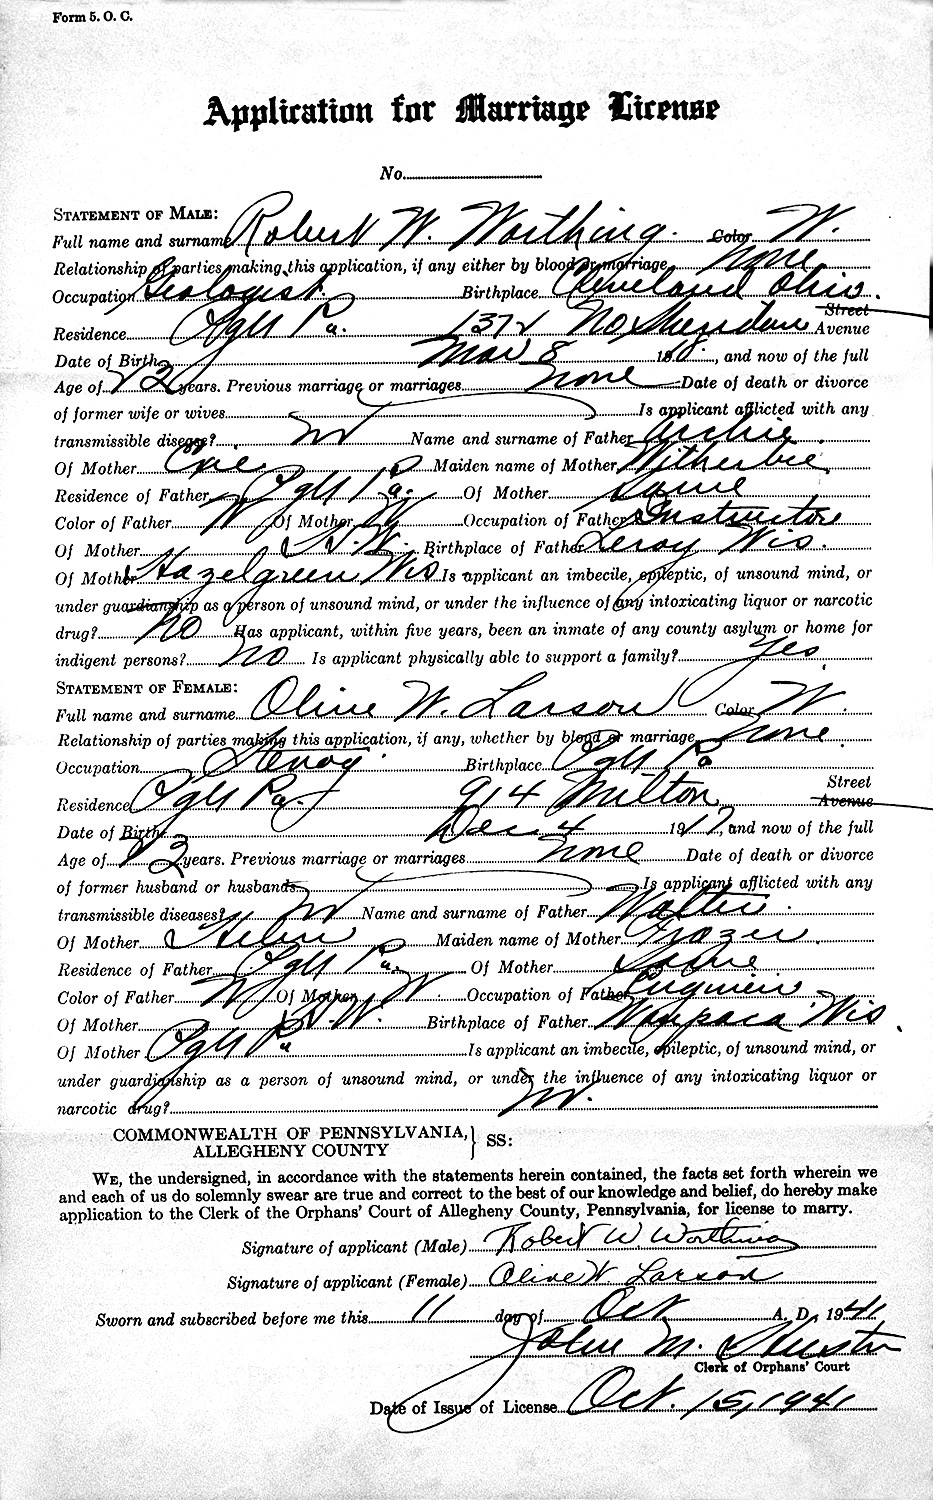 Form 5. O. C.
Application for Marriage License
No.
STATEMENT OF MALE:
Full name and surname Robert W. Worthing. Color W.
Relationship of parties making this application, if any either by blood or marriage none
Occupation Geologist Birthplace Cleveland Ohio.
Street
Residence Pgh Pa. 1372 No Sheridan Avenue
Date of Birth Mar 8 18, and now of the full
Age of 23 years. Previous marriage or marriages none Date of death or divorce
of former wife or wives Is applicant afflicted with any
transmissible disease? no Name and surname of Father Archie.
Of Mother Maiden name of Mother Witherbie.
Residence of Father Pgh Pa. Of Mother Same
Color of Father W Of Mother W Occupation of Father Instructor
Of Mother H.W. Birthplace of Father Leroy Wis.
Of Mother Hazelgreen Wis Is applicant an imbecile, epileptic, of unsound mind, or
under guardianship as a person of unsound mind, or under the influence of any intoxicating liquor or narcotic
drug? no Has applicant, within five years, been an inmate of any county asylum or home for
indigent persons? no Is applicant physically able to support a family? Yes.
STATEMENT OF FEMALE:
Full name and surname Olive W. Larson Color W.
Relationship of parties making this application, if any, whether by blood or marriage none.
Occupation Stenog. Birthplace Pgh Pa
Street
Residence Pgh Pa. 914 Milton Avenue
Date of Birth Dec 4 1917, and now of the full
Age of 23 years. Previous marriage or marriages none Date of death or divorce
of former husband or husbands Is applicant afflicted with any
transmissible diseases? no Name and surname of Father Walter.
Of Mother Helen Maiden name of Mother Frazer.
Residence of Father Pgh Pa. Of Mother Same
Color of Father W Of Mother W. Occupation of Father Engineer
Of Mother H.W. Birthplace of Father Waupaca Wis.
Of Mother Pgh Pa Is applicant an imbecile, epileptic, of unsound mind, or
under guardianship as a person of unsound mind, or under the influence of any intoxicating liquor or
narcotic drug? no.
COMMONWEALTH OF PENNSYLVANIA,
ALLEGHENY COUNTY } SS:
WE, the undersigned, in accordance with the statements herein contained, the facts set forth wherein we
and each of us do solemnly swear are true and correct to the best of our knowledge and belief, do hereby make
application to the Clerk of the Orphans' Court of Allegheny County, Pennsylvania, for license to marry.
Signature of applicant (Male) Robert W. Worthing
Signature of applicant (Female) Olive W. Larson
Sworn and subscribed before me this 11 day of Oct A. D. 1941
John M. Huston
Clerk of Orphans' Court
Date of Issue of License Oct. 15, 1941